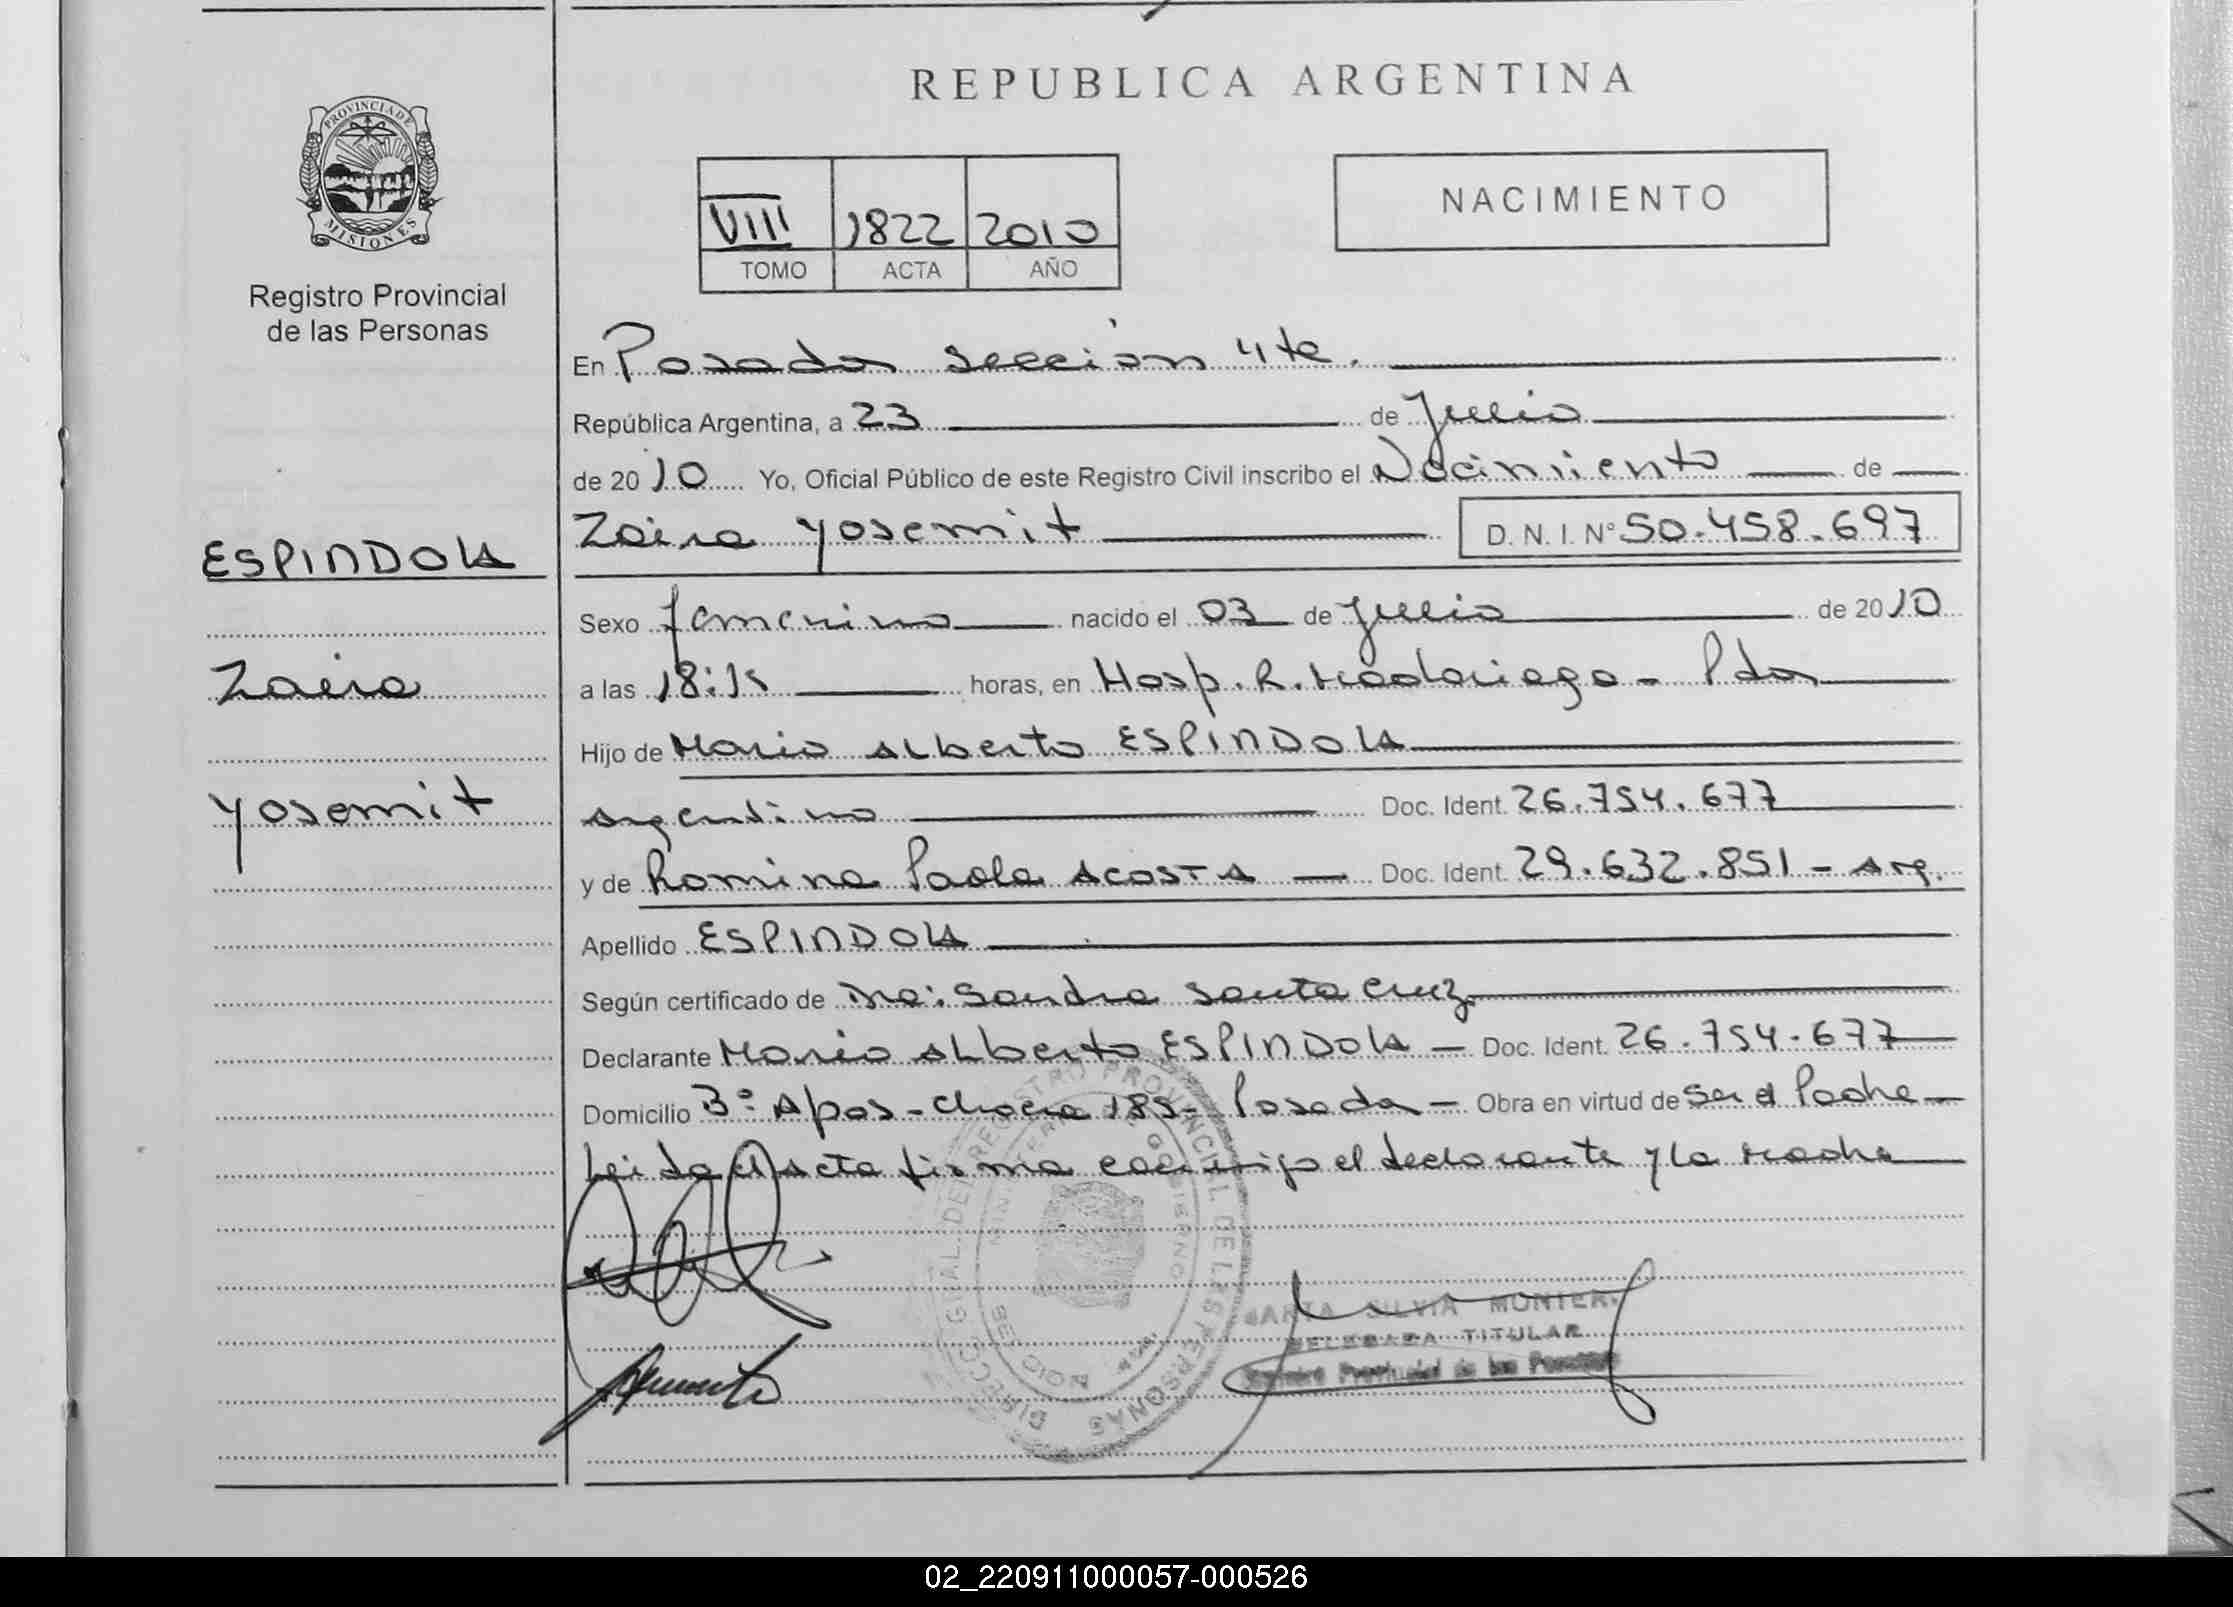 REPUBLICA ARGENTINA
PROVINCIA DE
MISIONES
Registro Provincial
de las Personas
NACIMIENTO
VIII 1822 2010
TOMO ACTA AÑO
En Posadas sección 4ta.
República Argentina, a 23 de Julio
de 2010 Yo, Oficial Público de este Registro Civil inscribo el Nacimiento de
Zaira Yosemit D. N. I. Nº 50.458.697
ESPINDOLA
Zaira
Yosemit
Sexo femenino nacido el 03 de Julio de 2010
a las 18:15 horas, en Hosp. R. Madariaga - Pdas
Hijo de Mario Alberto ESPINDOLA
argentino Doc. Ident. 26.754.677
y de Romina Paola ACOSTA Doc. Ident. 29.632.851 - Arg.
Apellido ESPINDOLA
Según certificado de Sandra Santa Cruz
Declarante Mario Alberto ESPINDOLA - Doc. Ident. 26.754.677
Domicilio Chacra 189 - Posadas - Obra en virtud de ser el Padre -
Leida el acta firma conmigo el declarante y la madre
DIRECC. GRAL. DEL REGISTRO PROVINCIAL DE LAS PERSONAS
MINISTERIO DE GOBIERNO
SILVIA MONTER
DELEGADA TITULAR
Registro Provincial de las Personas
02_220911000057-000526